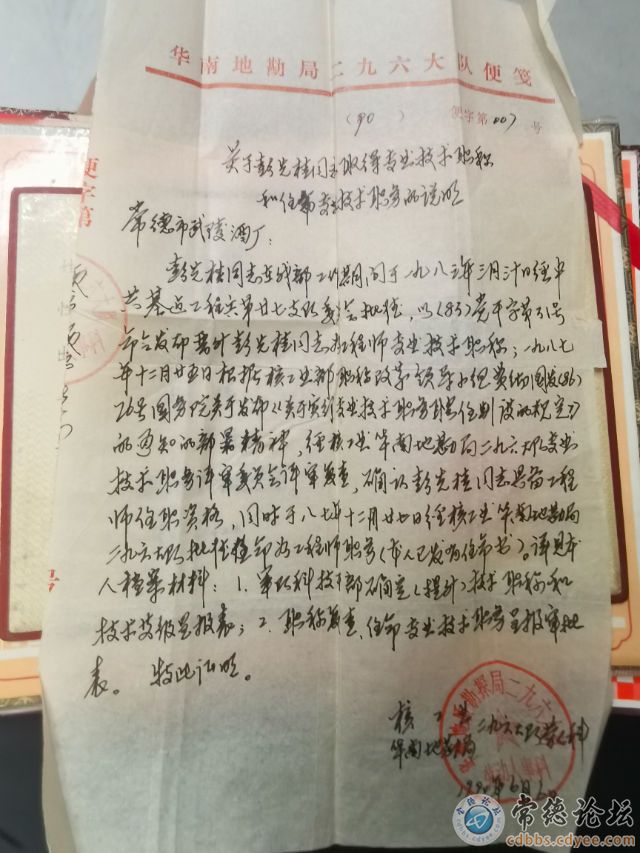 华南地勘局二九六大队便笺
(90) 便字第007号
关于彭先桂同志取得专业技术职称
和任命专业技术职务的说明
常德市武陵酒厂：
彭先桂同志在我部工作期间于一九八三年三月卅日经中
共基建工程兵第廿七支队委会批准，以(83)党干字第51号
命令发布晋升彭先桂同志为工程师专业技术职称；一九八七
年十二月廿五日根据核工业部职称改革领导小组贯彻国发(86)
26号国务院关于发布《关于实行专业技术职务聘任制度的规定》
的通知的部署精神，经核工业华南地勘局二九六大队专业
技术职务评审委员会评审复查，确认彭先桂同志具备工程
师任职资格，同时于八七年十二月廿七日经核工业华南地勘局
二九六大队批准任命为工程师职务(本人已发有任命书)。详见本
人档案材料：1.军队科技干部确定(提升)技术职称和
技术等级呈报表；2.职称复查、任命专业技术职务呈报审批
表。特此说明。
核工业
华南地勘局
二九六大队
1990年6月6日
便字第
号
常德论坛
cdbbs.cdyee.com